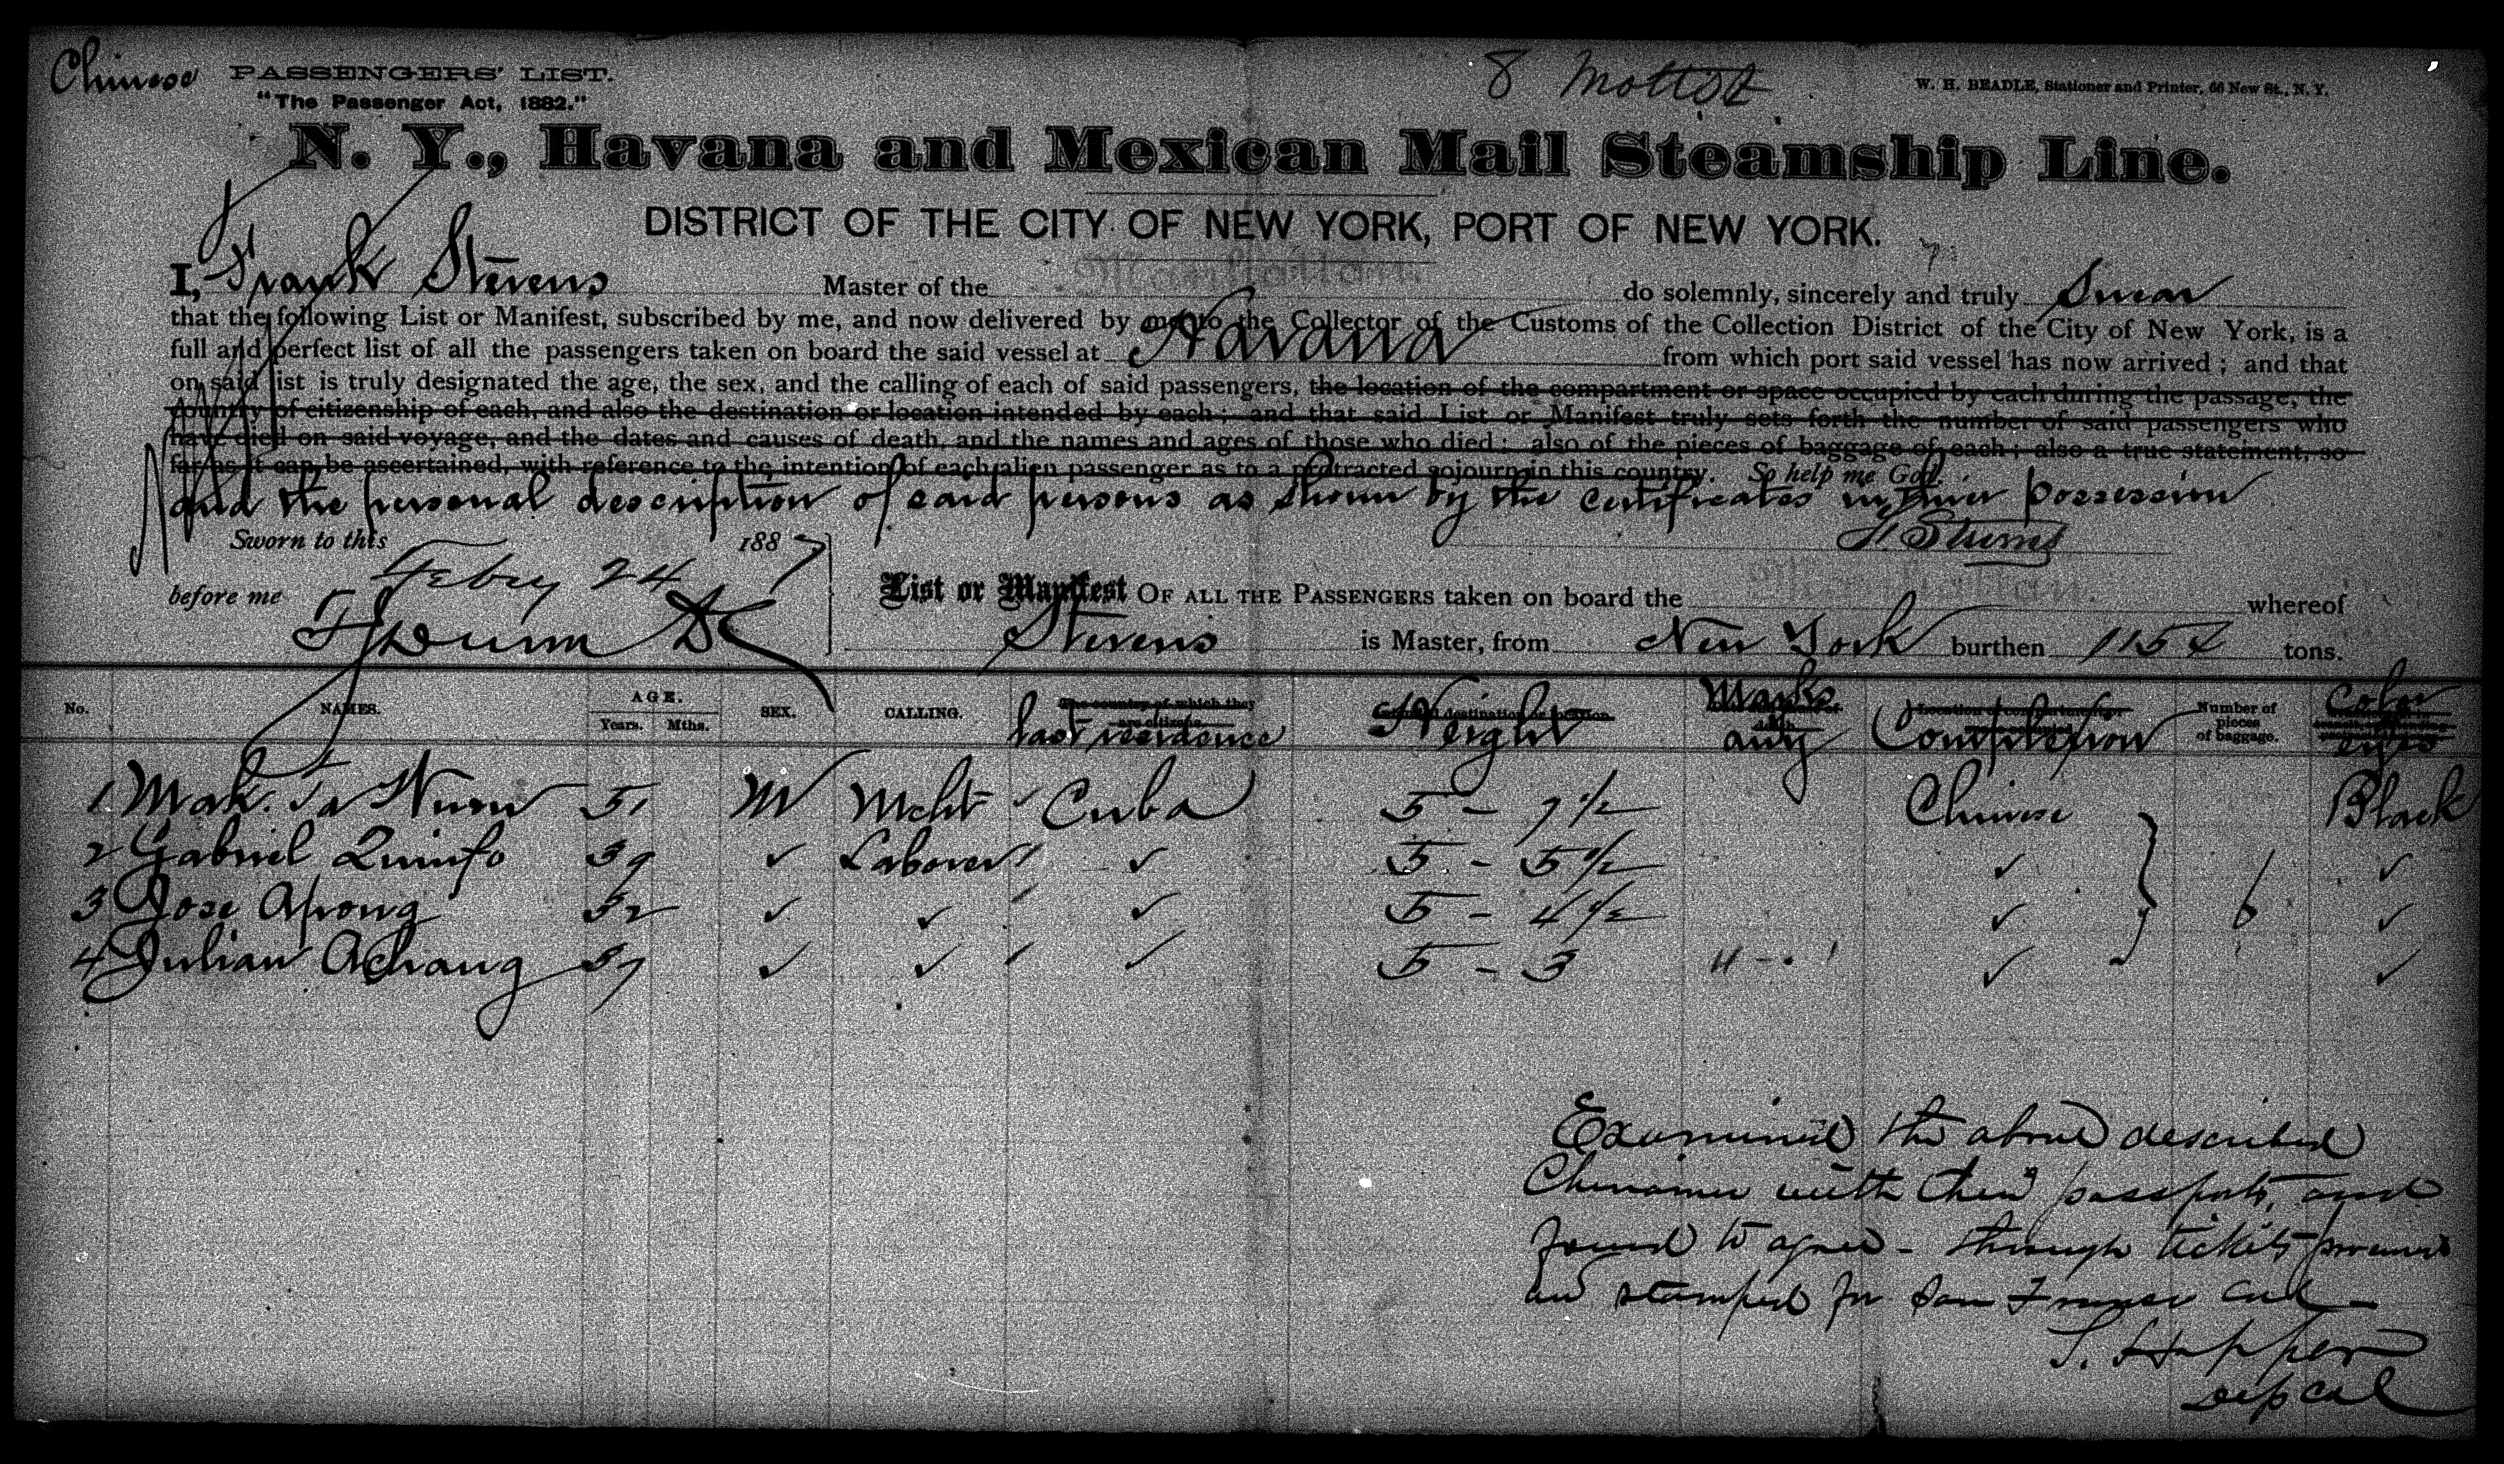 Chinese PASSENGERS' LIST. 8 Mott St W. H. BEADLE, Stationer and Printer, 66 New St., N. Y.
"The Passenger Act, 1882."
N. Y., Havana and Mexican Mail Steamship Line.
DISTRICT OF THE CITY OF NEW YORK, PORT OF NEW YORK.
I, Frank Stevens Master of the Manhattan. do solemnly, sincerely and truly Swear
that the following List or Manifest, subscribed by me, and now delivered by me to the Collector of the Customs of the Collection District of the City of New York, is a
full and perfect list of all the passengers taken on board the said vessel at Havana from which port said vessel has now arrived; and that
on said list is truly designated the age, the sex, and the calling of each of said passengers, the location of the compartment or space occupied by each during the passage, the
country of citizenship of each, and also the destination or location intended by each; and that said List or Manifest truly sets forth the number of said passengers who
have died on said voyage, and the dates and causes of death, and the names and ages of those who died; also of the pieces of baggage of each; also a true statement, so
far as it can be ascertained, with reference to the intention of each alien passenger as to a protracted sojourn in this country. So help me God.
and the personal description of said persons as shown by the certificates in their possession
F. Stevens
Sworn to this Feby 24 1887
before me
List or Manifest OF ALL THE PASSENGERS taken on board the Manhattan. whereof
Stevens is Master, from New York burthen 1154 tons.
No. NAMES. AGE. Years. Mths. SEX. CALLING. The country of which they are citizens. last residence Height Marks any Complexion Number of pieces of baggage. Color eyes
1 Mak. Ta Num 51 M Mcht ✓ Cuba 5 - 7 1/2 Chinese Black
2 Gabriel Quinfo 39 ✓ Laborer ✓ 5 - 5 1/2 ✓ ✓
3 Jose Apong 52 ✓ ✓ ✓ 5 - 4 1/2 ✓ 6 ✓
4 Julian Achang 37 ✓ ✓ ✓ 5 - 3 ✓ ✓
Examined the above described
Chinamen with their passports, and
found to agree - through tickets procured
and stamped for San Franco Cal -
T. Hopper
Dep Col